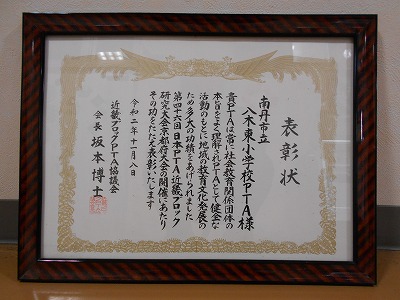 表彰状
南丹市立
八木東小学校PTA様
貴PTAは常に社会教育関係団体の
本旨をよく理解されPTAとして健全な
活動のもとに地域の教育文化発展の
ため多大の功績をあげられました
第四十六回日本PTA近畿ブロック
研究大会京都府大会の開催にあたり
その功をたたえ表彰いたします
令和二年十一月八日
近畿ブロックPTA協議会
会長 坂本博士